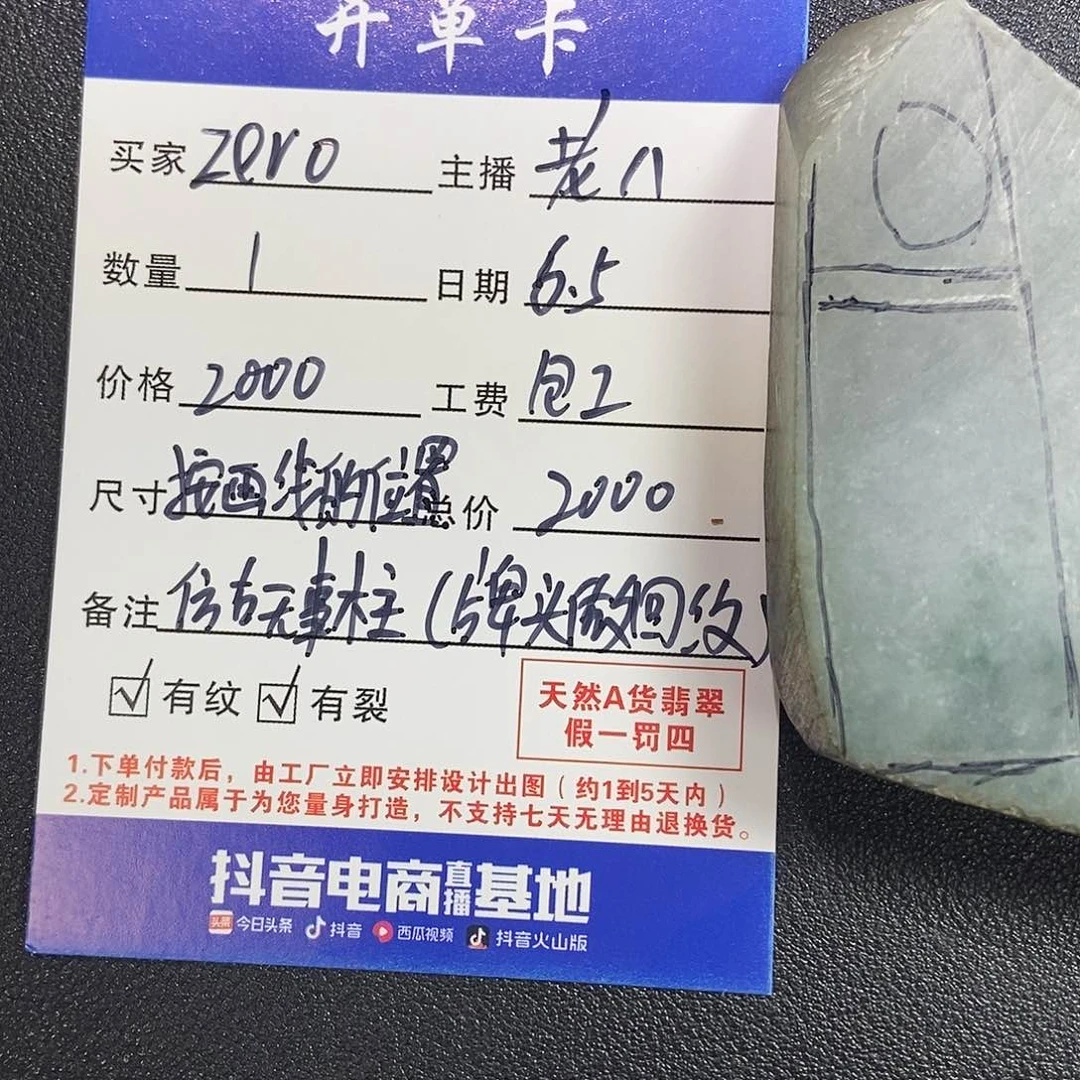 开单卡
买家 zero 主播 老八
数量 1 日期 6.5
价格 2000 工费 包工
尺寸 按画线的位置 总价 2000
备注 仿古无事柱(牌头做回纹)
☑有纹 ☑有裂
天然A货翡翠
假一罚四
1.下单付款后，由工厂立即安排设计出图（约1到5天内）
2.定制产品属于为您量身打造，不支持七天无理由退换货。
抖音电商直播基地
头条 今日头条 抖音 西瓜视频 抖音火山版